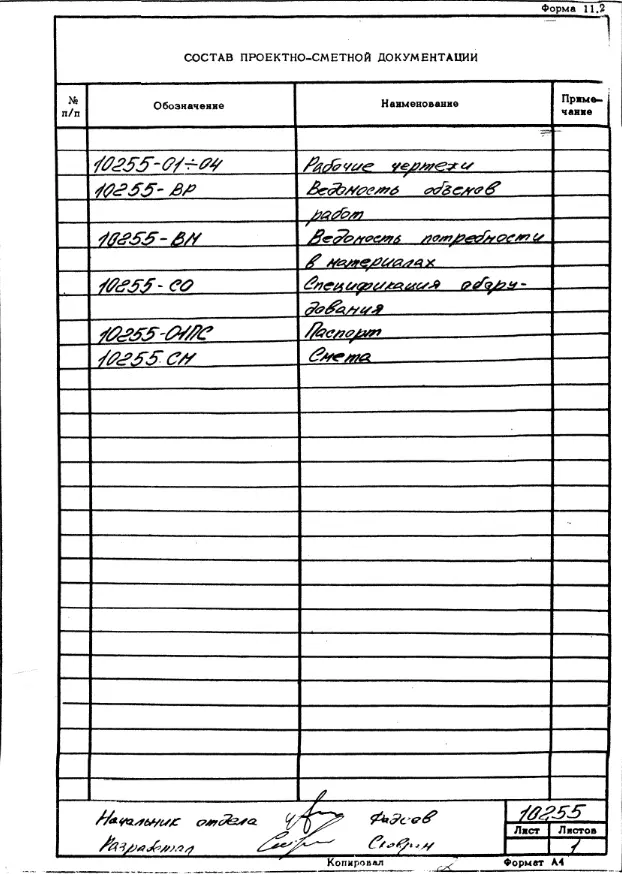 Форма 11.2
СОСТАВ ПРОЕКТНО-СМЕТНОЙ ДОКУМЕНТАЦИИ
№ п/п Обозначение Наименование Приме-чание
10255-01÷04 Рабочие чертежи
10255-ВР Ведомость объемов
работ
10255-ВМ Ведомость потребности
в материалах
10255-СО Спецификация обору-
дования
10255-01ПС Паспорт
10255-СМ Смета
10255
Начальник отдела
Лист Листов
Разработал 1
Копировал Формат А4